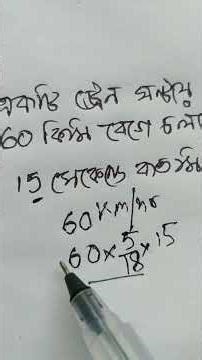 একটি ট্রেন ঘন্টায়
60 কিমি বেগে চলে
15 সেকেন্ডে কত মি
60 km/hr
60 × 5/18 × 15